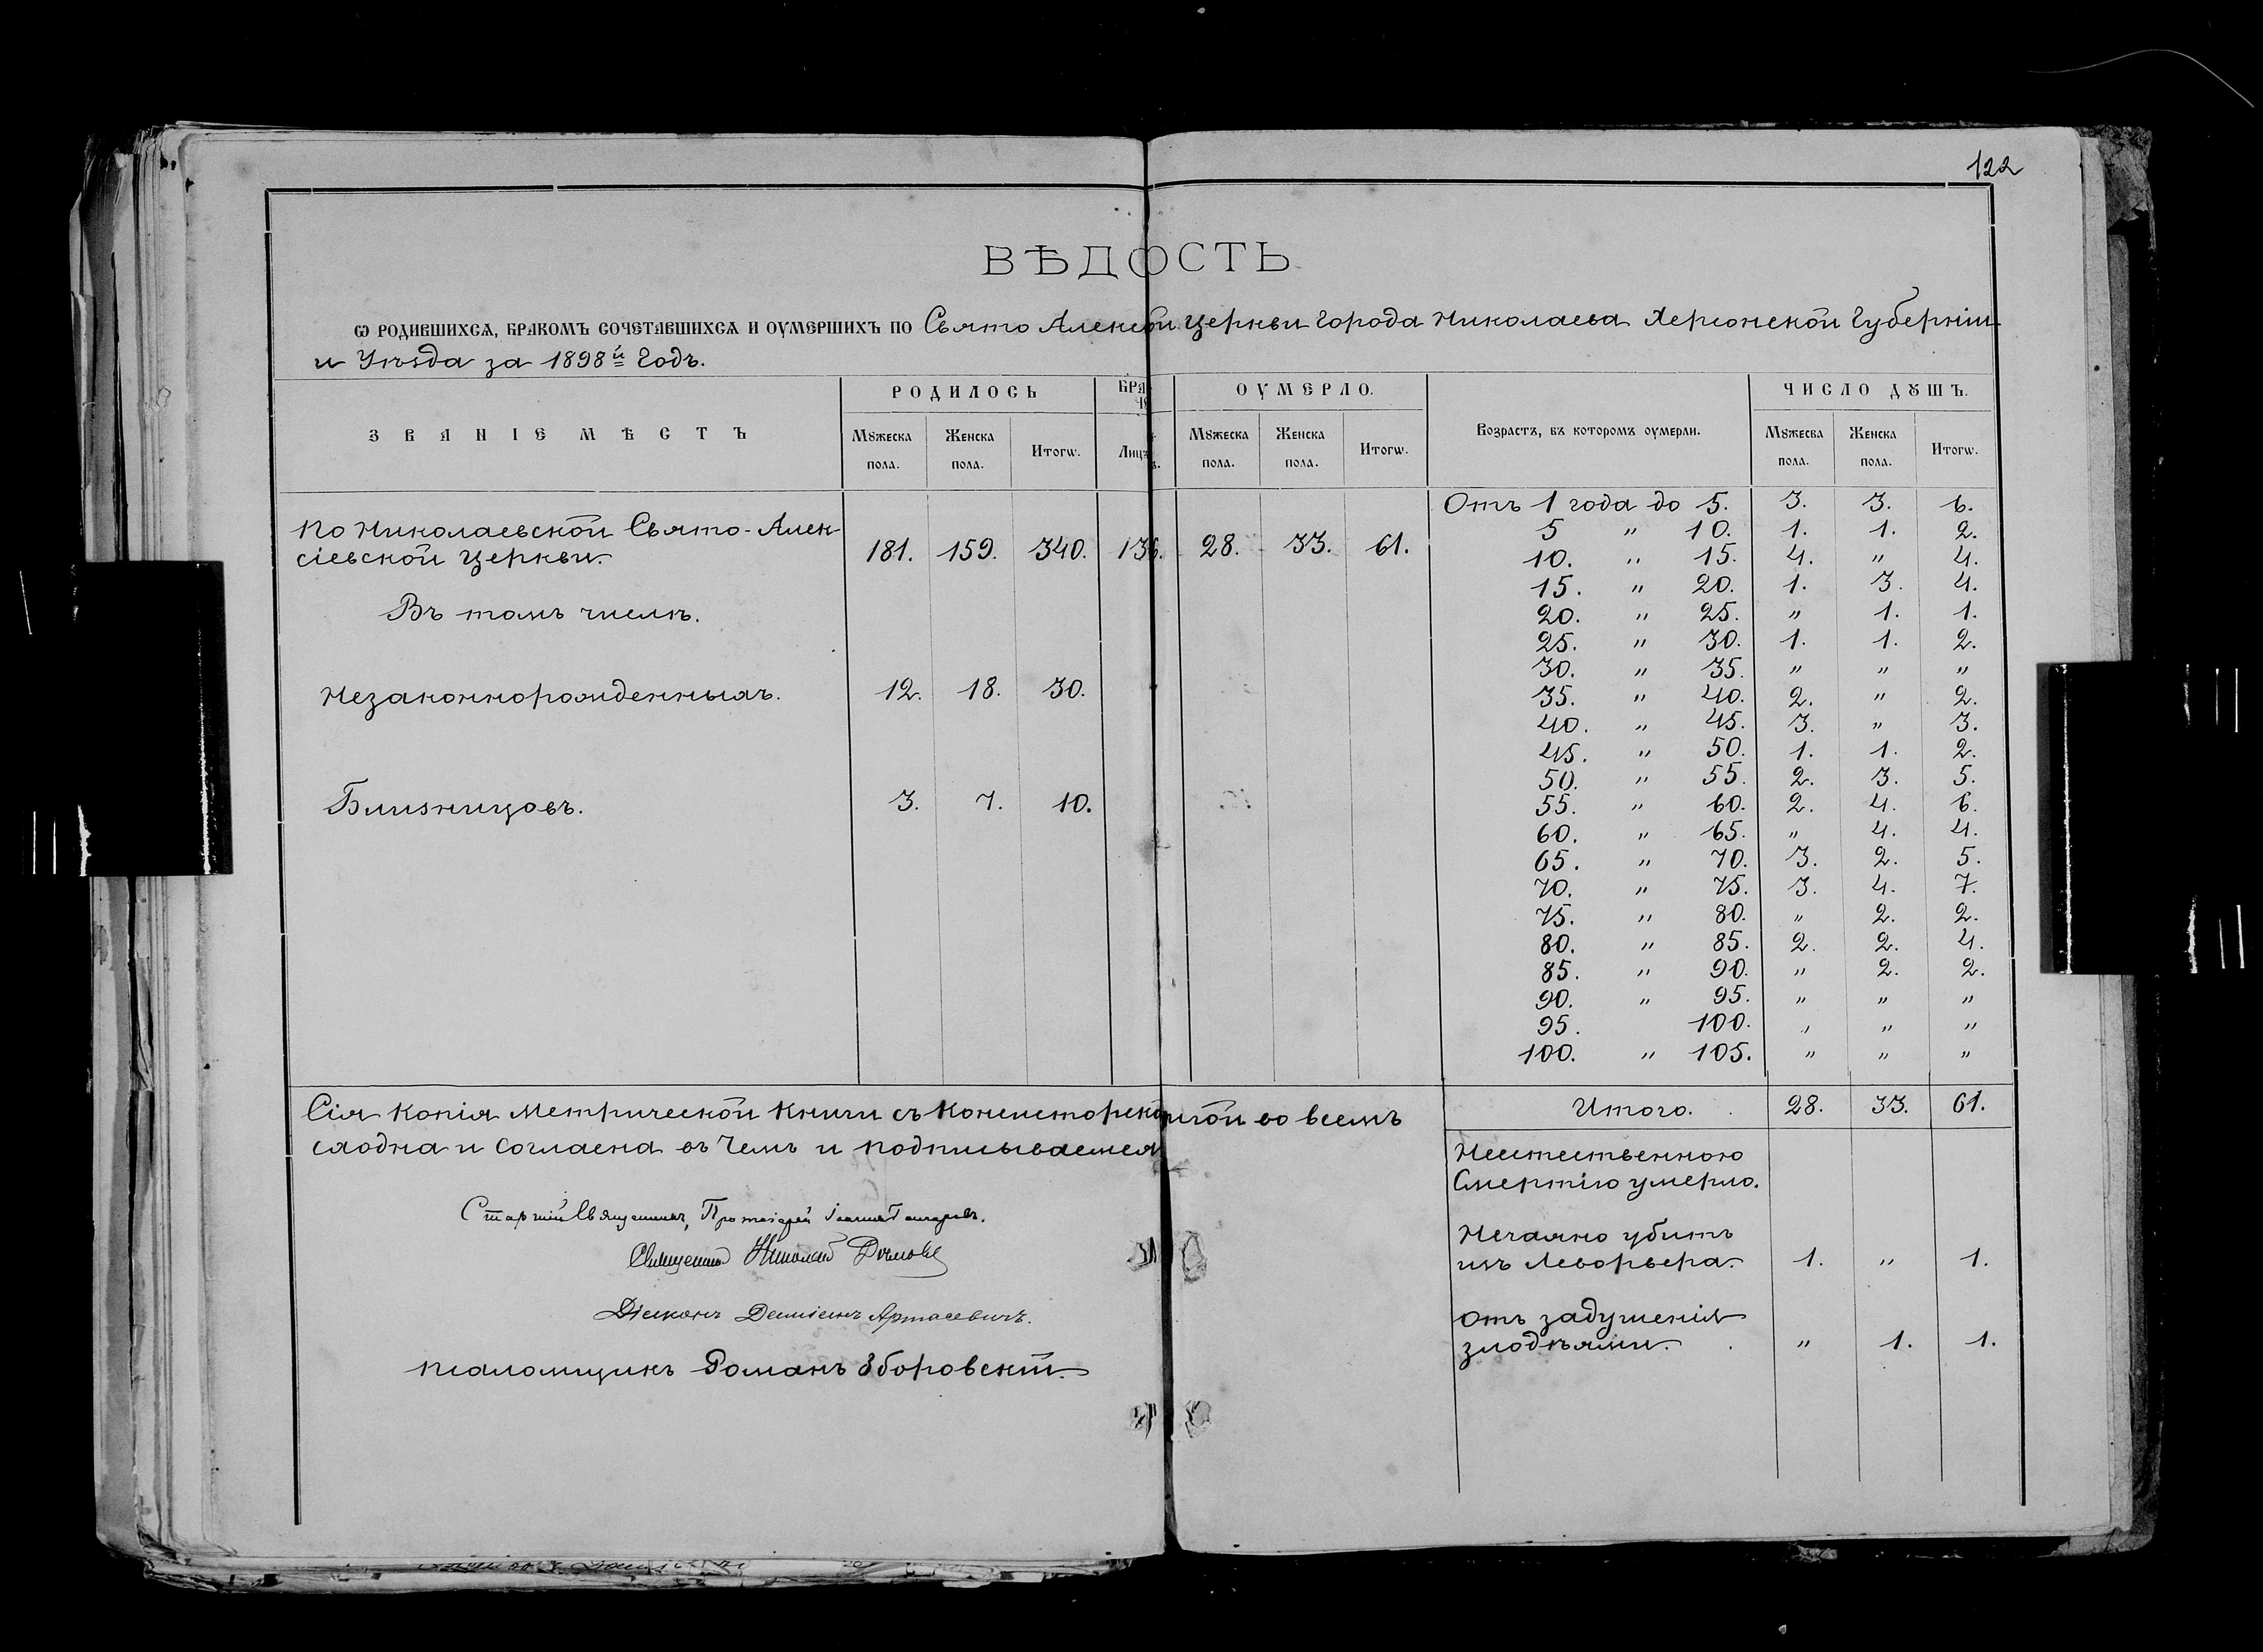 122
ВѢДОСТЬ
Ѡ РОДИВШИХСѦ, БРАКОМЪ СОЧЕТАВШИХСѦ И ОУМЕРШИХЪ ПО Свято Алексѣи церкви города Николаева Херсонской Губерніи
и Уѣзда за 1898й Годъ.
ЗВАНІЕ МѢСТЪ
РОДИЛОСЬ
ОУМЕРЛО.
Возрастъ, въ которомъ оумерли.
ЧИСЛО ДꙊШЪ.
Мꙋжеска пола. Женска пола. Итогѡ. Лицъ Мꙋжеска пола. Женска пола. Итогѡ. Мꙋжеска пола. Женска пола. Итогѡ.
По Николаевской Свято-Алек-
сіевской церкви. 181. 159. 340. 136. 28. 33. 61.
Въ томъ числѣ.
Незаконнорожденныхъ. 12. 18. 30.
Близницовъ. 3. 7. 10.
Отъ 1 года до 5. 3. 3. 6.
5 " 10. 1. 1. 2.
10. " 15. 4. " 4.
15. " 20. 1. 3. 4.
20. " 25. " 1. 1.
25. " 30. 1. 1. 2.
30. " 35. " " "
35. " 40. 2. " 2.
40. " 45. 3. " 3.
45. " 50. 1. 1. 2.
50. " 55. 2. 3. 5.
55. " 60. 2. 4. 6.
60. " 65. " 4. 4.
65. " 70. 3. 2. 5.
70. " 75. 3. 4. 7.
75. " 80. " 2. 2.
80. " 85. 2. 2. 4.
85. " 90. " 2. 2.
90. " 95. " " "
95. 100. " " "
100. " 105. " " "
Итого. 28. 33. 61.
Сія копія Метрической книги съ Консисторской во всемъ
сходна и согласна въ чемъ и подписываемся
Старшій Священникъ, Протоіерей Іоаннъ
Священникъ Николай
Діаконъ Даміанъ Артасевичъ.
псаломщикъ Романъ Зборовскій.
Неестественною
Смертію умерло.
Нечаяно убитъ
изъ Леворьвера. 1. " 1.
Отъ задушенія
злодѣями. " 1. 1.